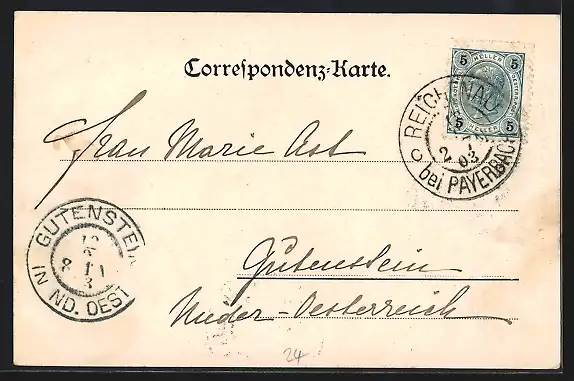 Correspondenz-Karte.
5 HELLER 5
5 HELLER 5
REICHENAU
2 03
bei PAYERBACH
C
Frau Marie Ast
GUTENSTEIN
IN ND. OEST
Gutenstein
Nieder-Oesterreich
24